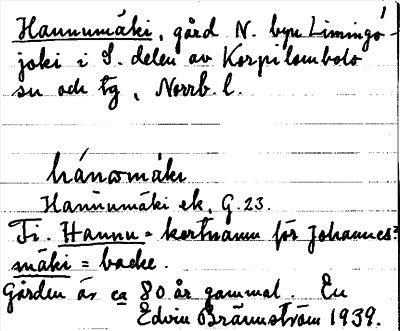 Hannumäki, gård N. byn Limingo-
joki i S. delen av Korpilombolo
sn och tg, Norrb. l.
hánơmäki
Hannumäki ek. G. 23.
Fi. Hannu = kortnamn för Johannes
mäki = backe.
Gården är ca 80 år gammal. En
Edvin Brännström 1939.